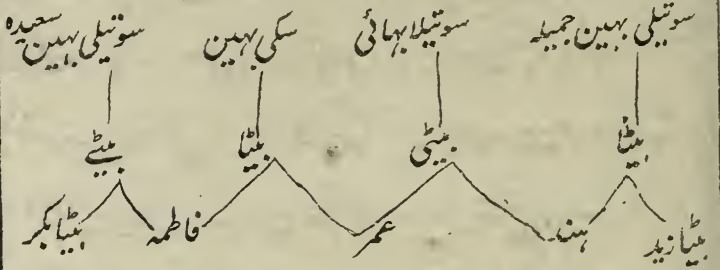 سوتیلی بہین جمیلہ سوتیلا بہائی سگی بہین سوتیلی بہین سعیدہ
بیٹا بیٹی بیٹا بیٹے
بیٹا زید ہندہ عمر فاطمہ بیٹا بکر